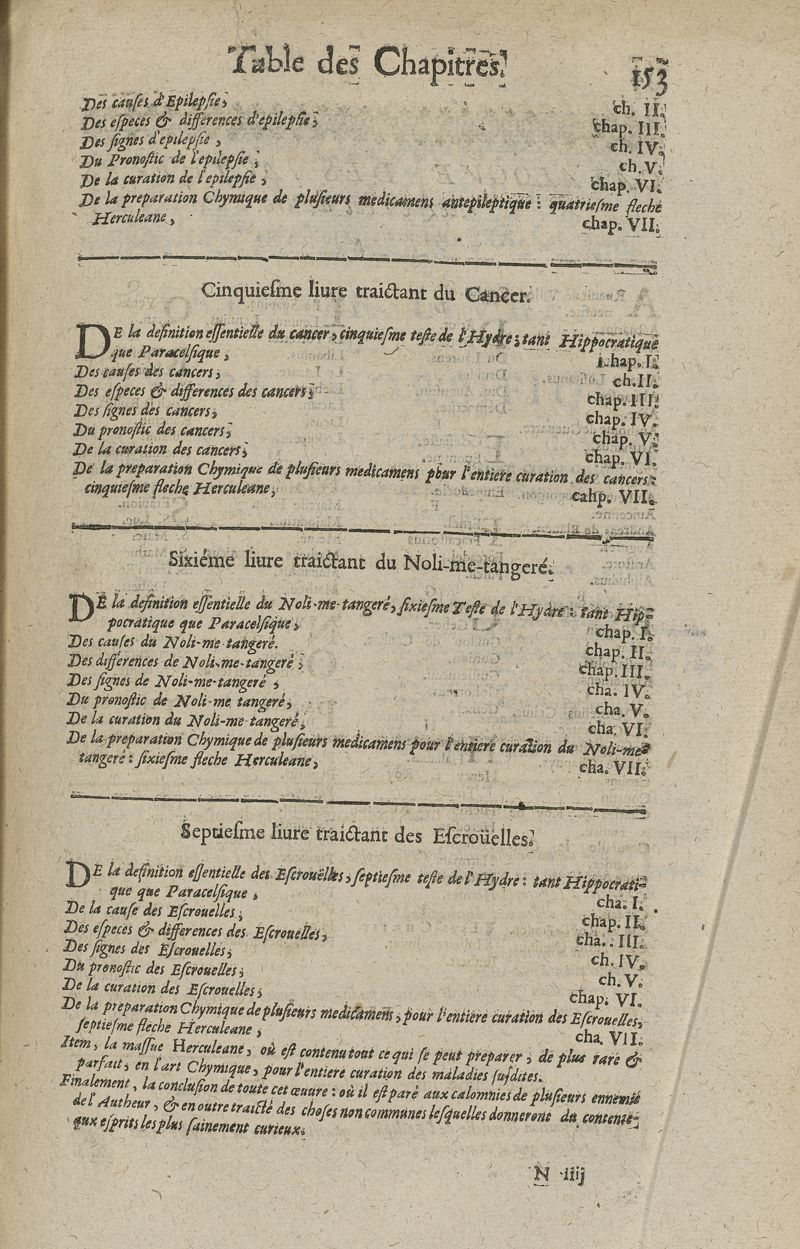 Table des Chapitres.
153
Des causes d'Epilepsie, ch. II.
Des especes & differences d'epilepsie, chap. III.
Des signes d'epilepsie, ch. IV.
Du Pronostic de l'epilepsie, ch. V.
De la curation de l'epilepsie, chap. VI.
De la preparation Chymique de plusieurs medicamens antepileptique : quatriesme fleche
Herculeane, chap. VII.
Cinquiesme liure traictant du Cancer.
DE la definition essentielle du cancer, cinquiesme teste de l'Hydre; tant Hippocratique
que Paracelsique, chap. I.
Des causes des cancers, ch. II.
Des especes & differences des cancers, chap. III.
Des signes des cancers, chap. IV.
Du pronostic des cancers, chap. V.
De la curation des cancers, chap. VI.
De la preparation Chymique de plusieurs medicamens pour l'entiere curation des cancers:
cinquiesme fleche Herculeane, cahp. VII.
Sixiéme liure traictant du Noli-me-tangeré.
DE la definition essentielle du Noli-me-tangeré, sixiesme Teste de l'Hydre : tant Hip-
pocratique que Paracelsique, chap. I.
Des causes du Noli-me tangeré. chap. II.
Des differences de Noli-me-tangeré, chap. III.
Des signes de Noli-me-tangeré, cha. IV.
Du pronostic de Noli-me tangeré, cha. V.
De la curation du Noli-me-tangeré, cha. VI.
De la preparation Chymique de plusieurs medicamens pour l'entiere curation du Noli-me-
tangeré : sixiesme fleche Herculeane, cha. VII.
Septiesme liure traictant des Escroüelles.
DE la definition essentielle des Escrouëlles, septiesme teste de l'Hydre : tant Hippocrati-
que que Paracelsique, cha. I.
De la cause des Escrouelles, chap. II.
Des especes & differences des Escrouelles, cha. III.
Des signes des Escrouelles, ch. IV.
Du pronostic des Escrouelles, ch. V.
De la curation des Escrouelles, chap. VI.
De la preparation Chymique de plusieurs medicamens, pour l'entiere curation des Escrouelles,
septiesme fleche Herculeane, cha. VII.
Item, la massue Herculeane, où est contenu tout ce qui se peut preparer, de plus rare &
parfait, en l'art Chymique, pour l'entiere curation des maladies susdites.
Finalement, la conclusion de toute cet œuure : où il est paré aux calomnies de plusieurs ennemis
de l'Autheur, & en outre traicté des choses non communes lesquelles donneront du contente-
aux esprits les plus sainement curieux.
N iiij